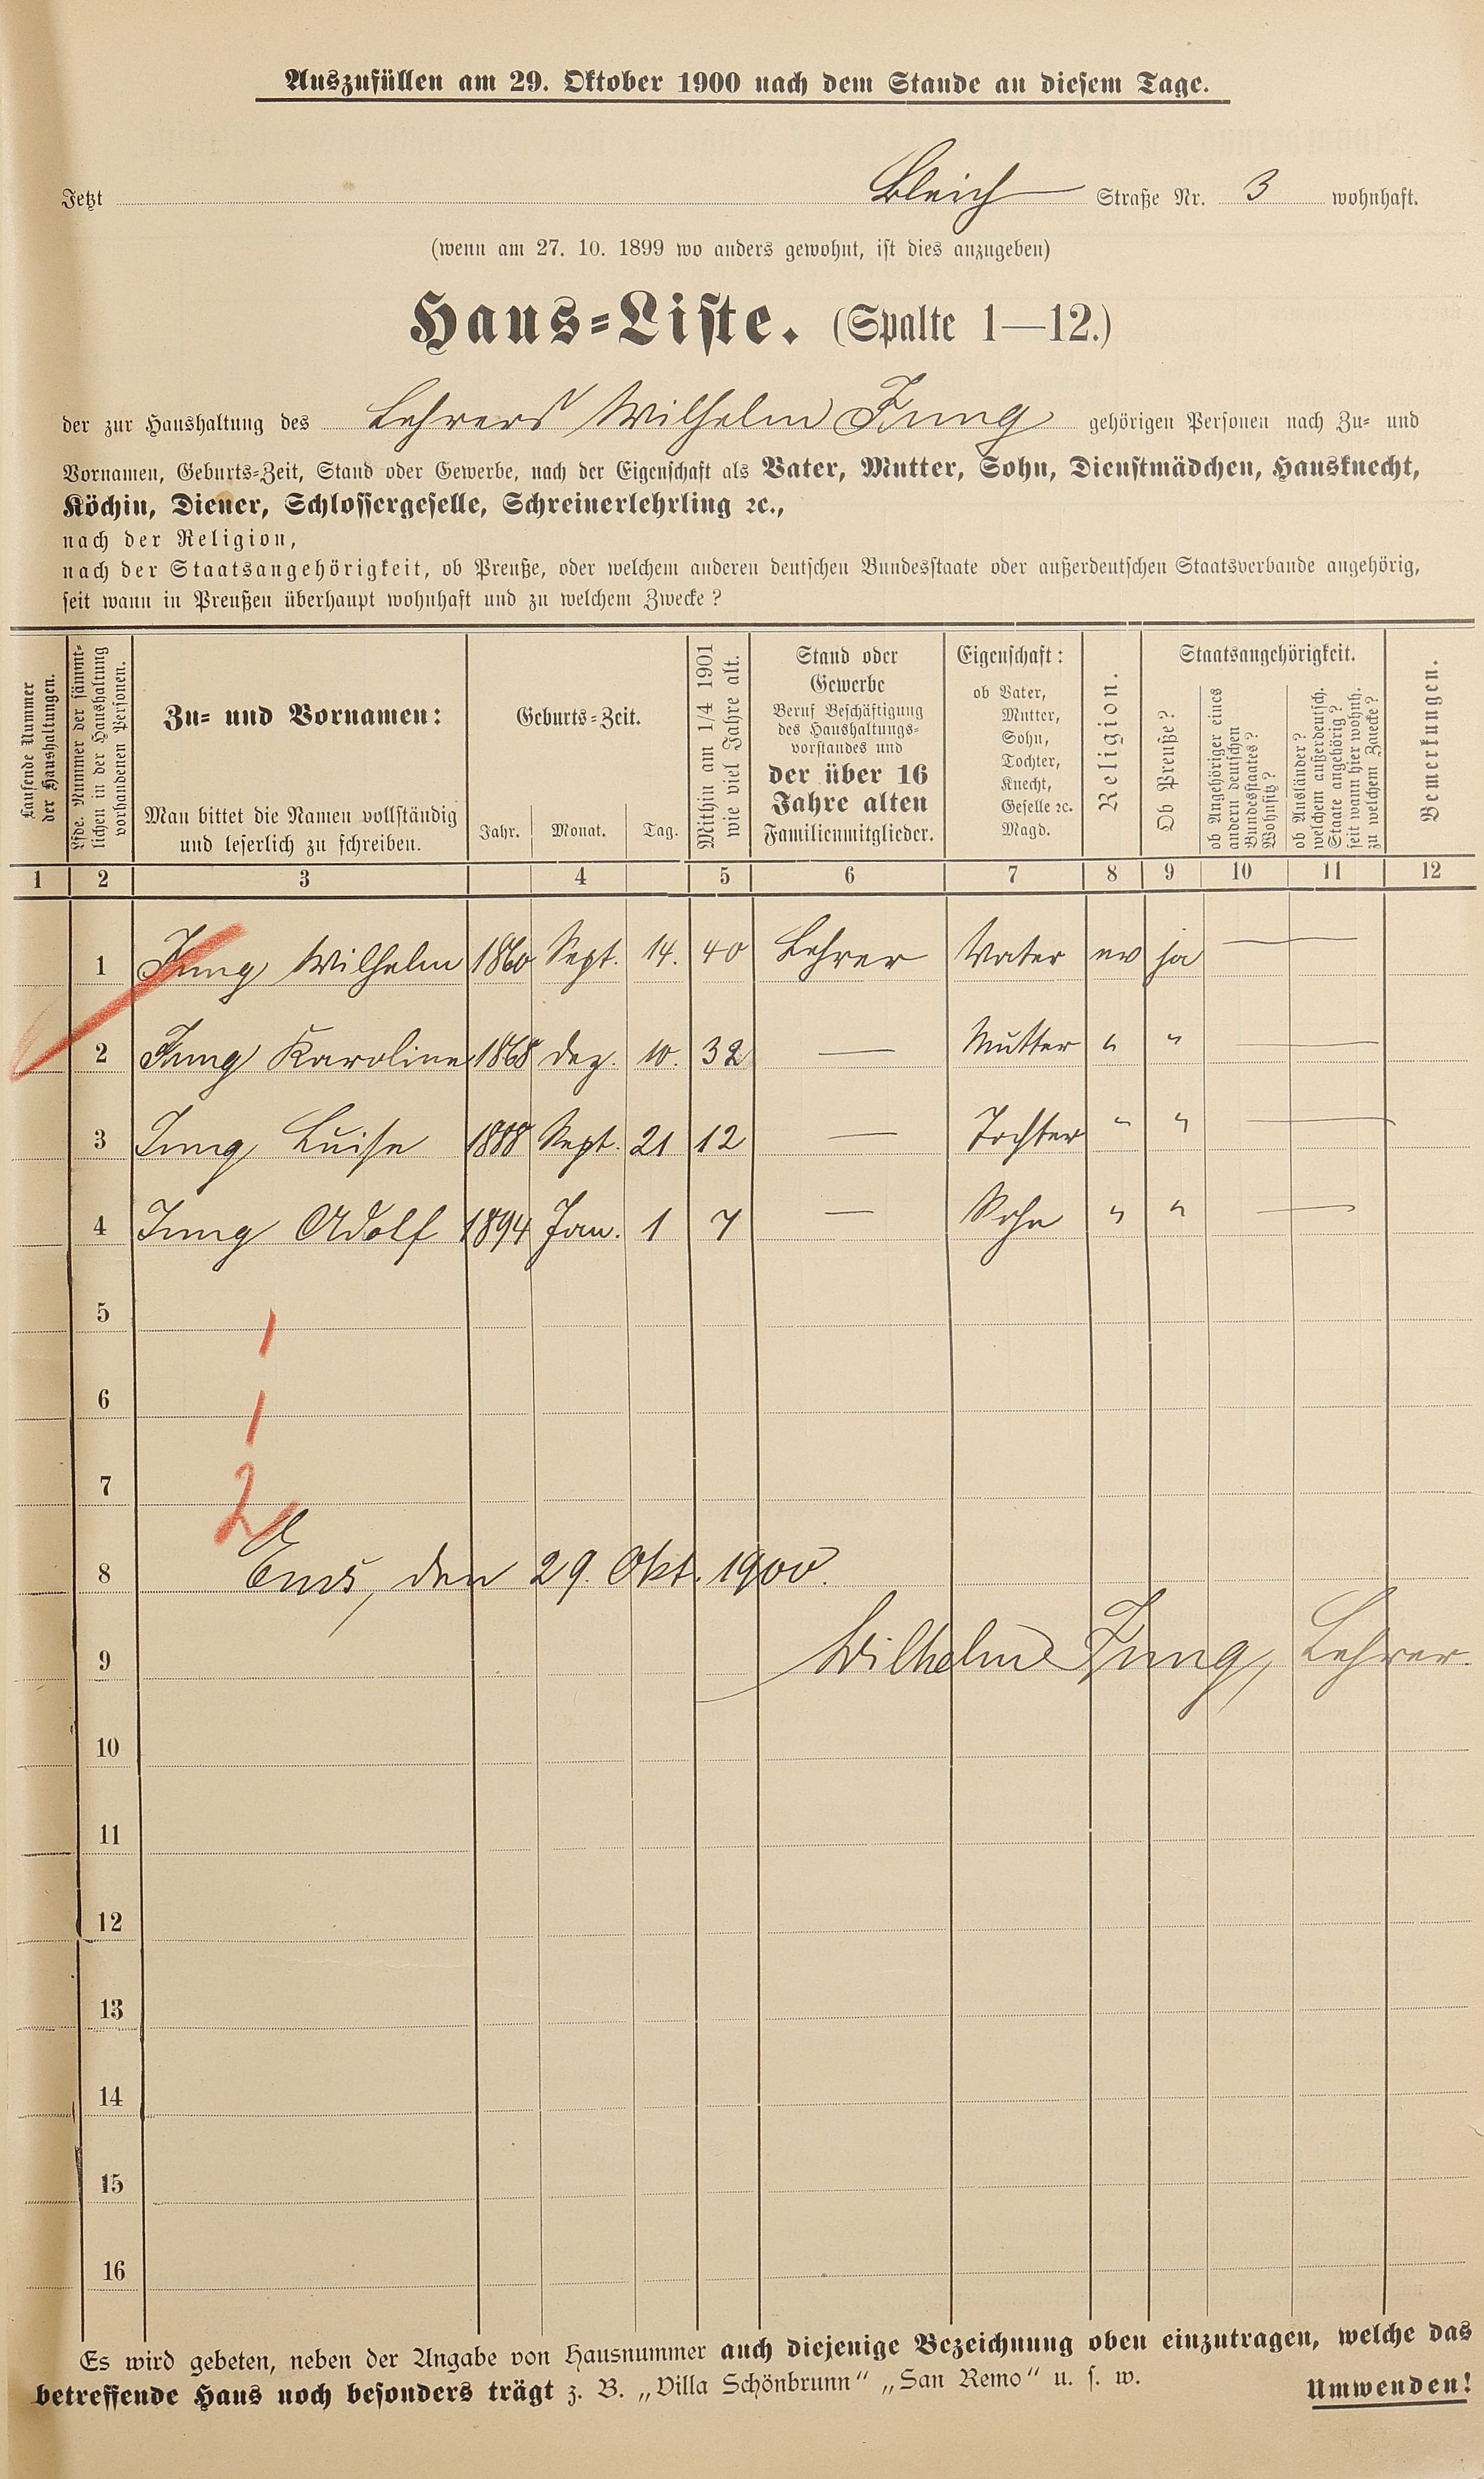 Auszufüllen am 29. Oktober 1900 nach dem Stande an diesem Tage.
Jetzt Bleich Straße Nr. 3 wohnhaft.
(wenn am 27. 10. 1899 wo anders gewohnt, ist dies anzugeben)
Haus-Liste. (Spalte 1—12.)
der zur Haushaltung des Lehrers Wilhelm Jung gehörigen Personen nach Zu- und
Vornamen, Geburts-Zeit, Stand oder Gewerbe, nach der Eigenschaft als Vater, Mutter, Sohn, Dienstmädchen, Hausknecht,
Köchin, Diener, Schlossergeselle, Schreinerlehrling ꝛc.,
nach der Religion,
nach der Staatsangehörigkeit, ob Preuße, oder welchem anderen deutschen Bundesstaate oder außerdeutschen Staatsverbande angehörig,
seit wann in Preußen überhaupt wohnhaft und zu welchem Zwecke?
Laufende Nummer
der Haushaltungen.
Lfde. Nummer der sämmt-
lichen in der Haushaltung
vorhandenen Personen.
Zu- und Vornamen:
Man bittet die Namen vollständig
und leserlich zu schreiben.
Geburts-Zeit.
Jahr. Monat. Tag.
Mithin am 1/4 1901
wie viel Jahre alt.
Stand oder
Gewerbe
Beruf Beschäftigung
des Haushaltungs-
vorstandes und
der über 16
Jahre alten
Familienmitglieder.
Eigenschaft:
ob Vater,
Mutter,
Sohn,
Tochter,
Knecht,
Geselle ꝛc.
Magd.
Religion.
Staatsangehörigkeit.
Ob Preuße?
ob Angehöriger eines
andern deutschen
Bundesstaates?
Wohnsitz?
ob Ausländer?
welchem außerdeutsch.
Staate angehörig?
seit wann hier wohnh.
zu welchem Zwecke?
Bemerkungen.
1 2 3 4 5 6 7 8 9 10 11 12
1 Jung Wilhelm 1860 Sept. 14. 40 Lehrer Vater ev ja —
2 Jung Karoline 1868 Dez. 10. 32 — Mutter " " —
3 Jung Luise 1888 Sept. 21 12 — Tochter " " —
4 Jung Adolf 1894 Jan. 1 7 — Sohn " " —
5
1
6
1
7
2
8 Ems, den 29. Okt. 1900.
9 Wilhelm Jung, Lehrer.
10
11
12
13
14
15
16
Es wird gebeten, neben der Angabe von Hausnummer auch diejenige Bezeichnung oben einzutragen, welche das
betreffende Haus noch besonders trägt z. B. „Villa Schönbrunn" „San Remo" u. s. w.
Umwenden!